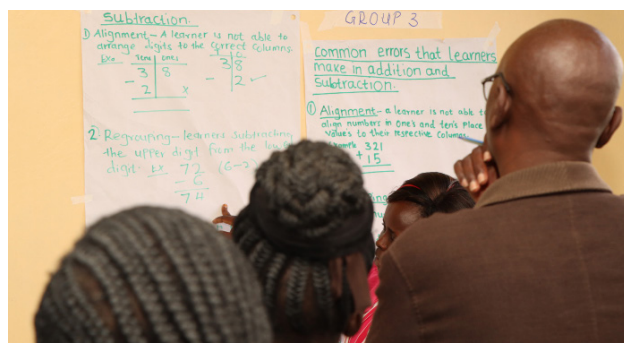 Subtraction.
1) Alignment - A learner is not able to
arrange digits to the correct columns.
Tens ones
3 8
- 2 x
3 8
- 2 ✓
2) Regrouping - learners subtracting
the upper digit from the lower
digit. Ex 72 (6-2)
- 6
74
GROUP 3
Common errors that learners
make in addition and
Subtraction.
① Alignment - a learner is not able to
align numbers in one's and ten's place
values to their respective columns.
321
+ 15